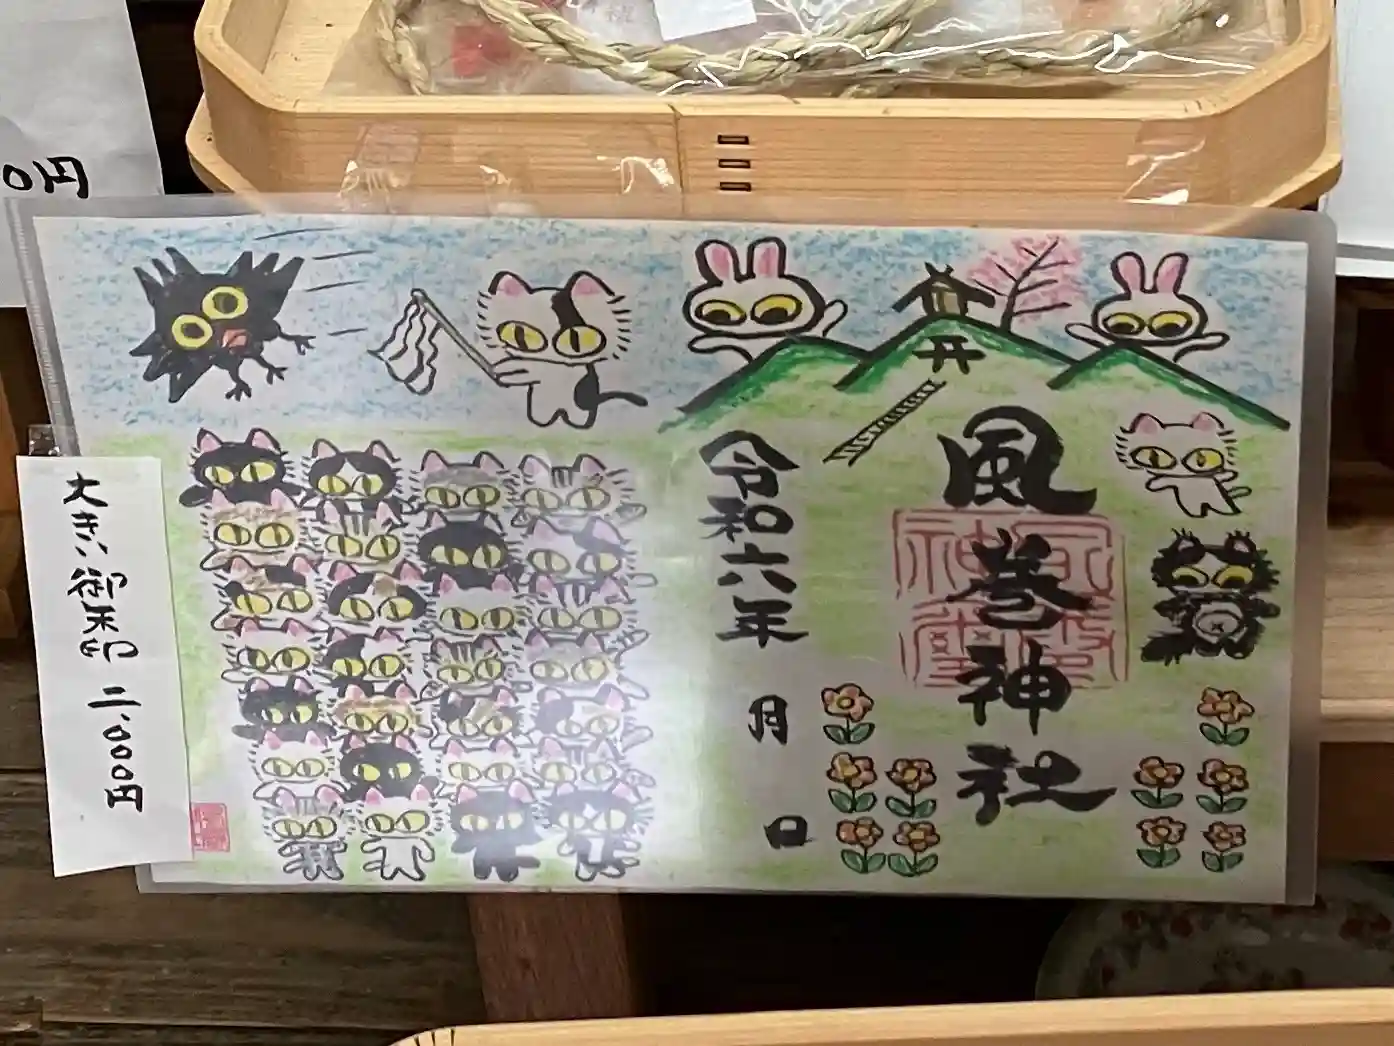 0円
大きい御朱印 二,000円
風巻神社
令和六年
月 日